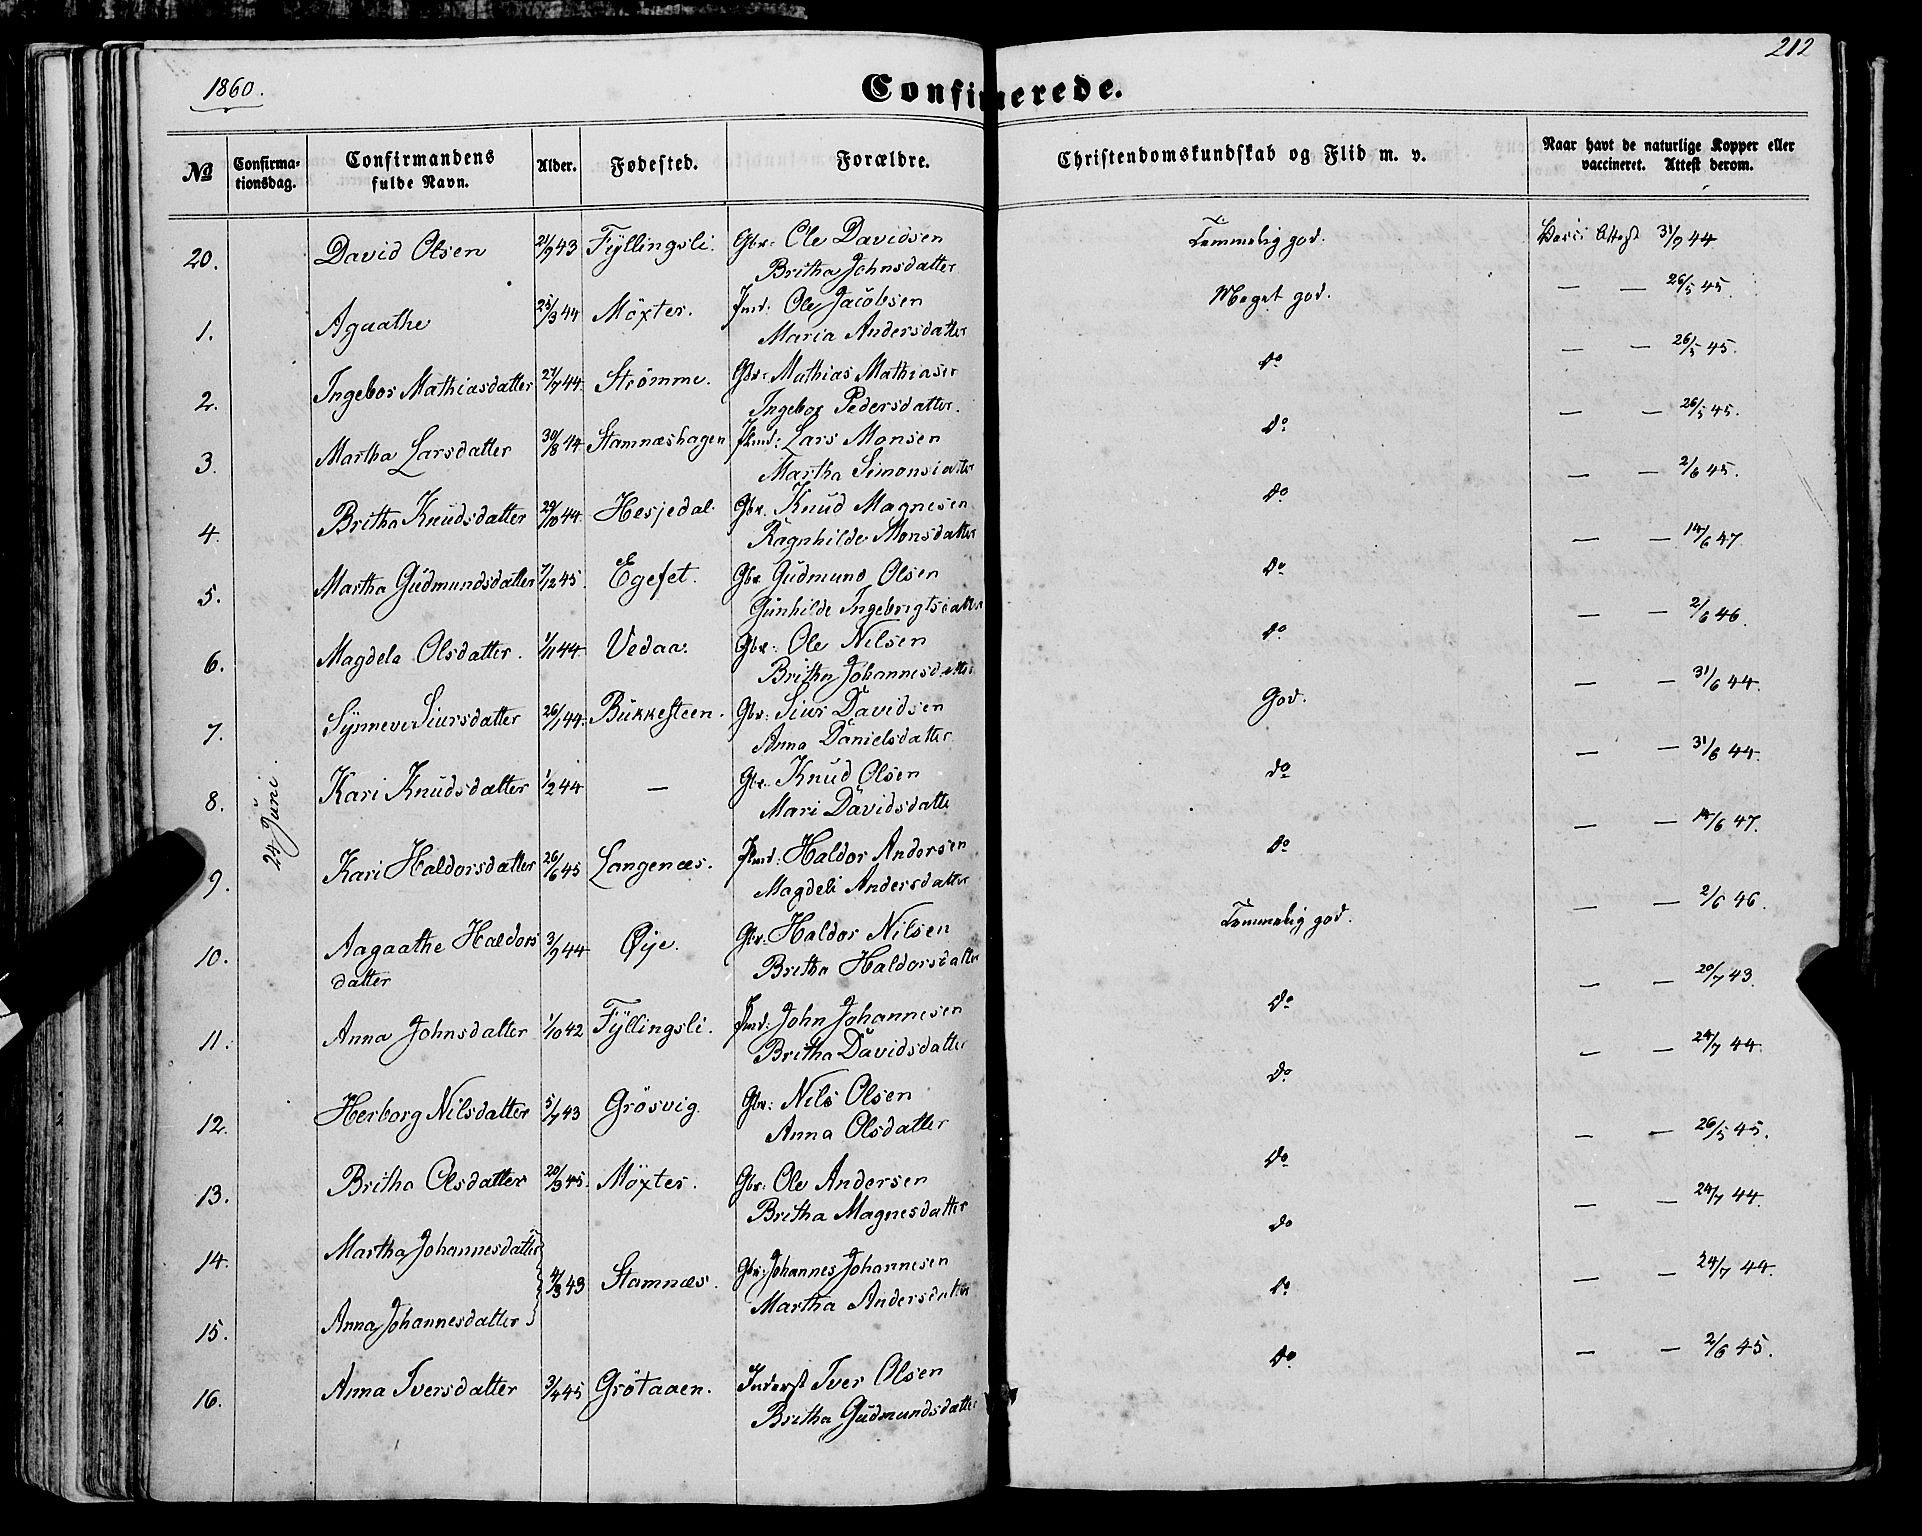 212
1860.
Confirmerede.
No Confirmationsdag. Confirmandens fulde Navn. Alder. Fødested. Forældre. Christendomskundskab og Flid m. v. Naar havt de naturlige Kopper eller vaccineret. Attest derom.
24 Juni.
20. David Olsen 21/9 43 Fyllingsli. Gbr: Ole Davidsen Temmelig god. Vacci Attest 31/9 44
Britha Johnsdatter
1. Agaathe 25/3 44 Möxter. Ole Jacobsen Meget god. — — 26/5 45.
Maria Andersdatter
2. Ingebor Mathiasdatter 27/7 44 Strömme. Gbr: Mathias Mathiasen do — — 26/5 45.
Ingebor Pedersdatter.
3. Martha Larsdatter 30/8 44 Stamnæshagen Lars Monsen do — — 26/5 45.
Martha Simonsdatter
4. Britha Knudsdatter 29/10 44 Hesjedal. Gbr. Knud Magnesen do — — 2/6 45.
Ragnhilde Monsdatter
5. Martha Gudmundsdatter 7/12 45. Egeset. Gbr Gudmund Olsen do — — 14/6 47.
Gunhilde Ingebrigtsdatter
6. Magdela Olsdatter. 1/11 44 Vedaa. Gbr: Ole Nilsen do — — 2/6 46.
Britha Johannesdatter
7. Synneve Siursdatter 26/ 44. Bukkesteen. Gbr: Siur Davidsen God. — — 31/6 44.
Anna Danielsdatter
8. Kari Knudsdatter 1/2 44 — Gbr. Knud Olsen do — — 31/6 44.
Mari Davidsdatte
9. Kari Haldorsdatter 26/6 45 Langenæs. Haldor Andersen do — — 14/6 47.
Magdeli Andersdatter
10. Aagaathe Haldors 3/9 44 Øye. Gbr. Haldor Nilsen Temmelig god. — — 2/6 46.
datter Britha Haldorsdatter
11. Anna Johnsdatter 1/10 42 Fyllingsli. John Johannesen do — — 20/7 43.
Britha Davidsdatter
12. Herborg Nilsdatter 5/7 43 Grösvig. Gbr: Nils Olsen do — — 24/7 44.
Anna Olsdatter
13. Britha Olsdatter 20/3 45. Möxter. Gbr: Ole Andersen do — — 26/5 45.
Britha Magnesdatter
14. Martha Johannesdatter 4/3 43 Stamnæs. Gbr: Johannes Johannesen do — — 24/7 44.
Martha Andersdatter
15. Anna Johannesdatter do — — 24/7 44.
16. Anna Iversdatter 3/4 45 Grötaaen. Inderst Iver Olsen do — — 2/6 45.
Britha Gudmundsdatter